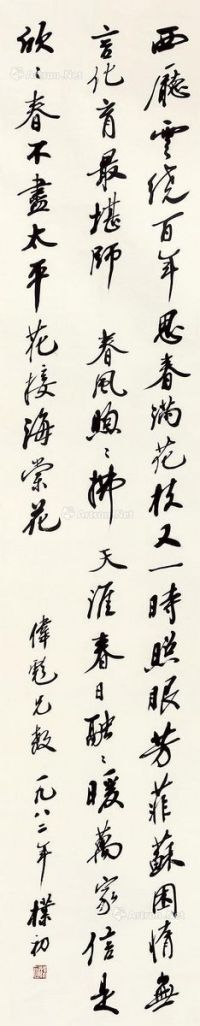 西廳雲繞百年思春滿花枝又一時照眼芳菲蘇困情無
言化育最堪師 春風煦〻拂天涯春日融〻暖萬家信是
欣〻春不盡太平花接海棠花
偉彪兄教 一九八二年 樸初